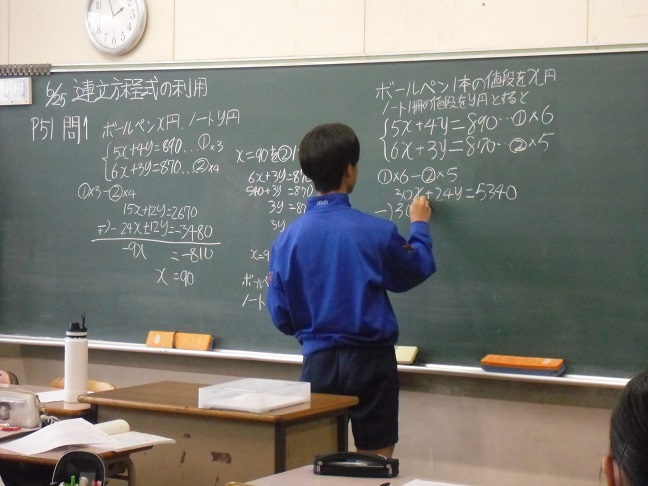 6/25 連立方程式の利用
P51 問1
ボールペンx円、ノートy円
5x+4y=890…①×3
6x+3y=870…②×4
①×3-②×4
15x+12y=2670
-) 24x+12y=3480
-9x =-810
x=90
x=90を②
6x+3y=870
540+3y=870
3y=87
3y
x=9
ボールペ
ノート
ボールペン1本の値段をx円
ノート1冊の値段をy円とすると
5x+4y=890…①×6
6x+3y=870…②×5
①×6-②×5
30x+24y=5340
-)30